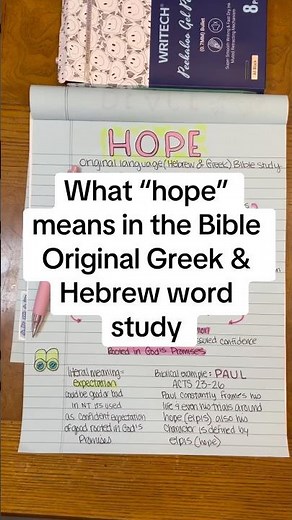 WRITECH
Peekaboo Gel Pen
8
HOPE
original language (Hebrew & Greek) Bible study
What “hope”
means in the Bible
Original Greek &
Hebrew word
study
confidence
rooted in God's Promises
literal meaning=
Expectation
could be good or bad
in NT its used
as confident expectation
of good rooted in God's
Promises
Biblical example: PAUL
ACTS 23-26
Paul constantly frames his
life & even his trials around
hope (elpis) also his
character is defined by
elpis (hope)